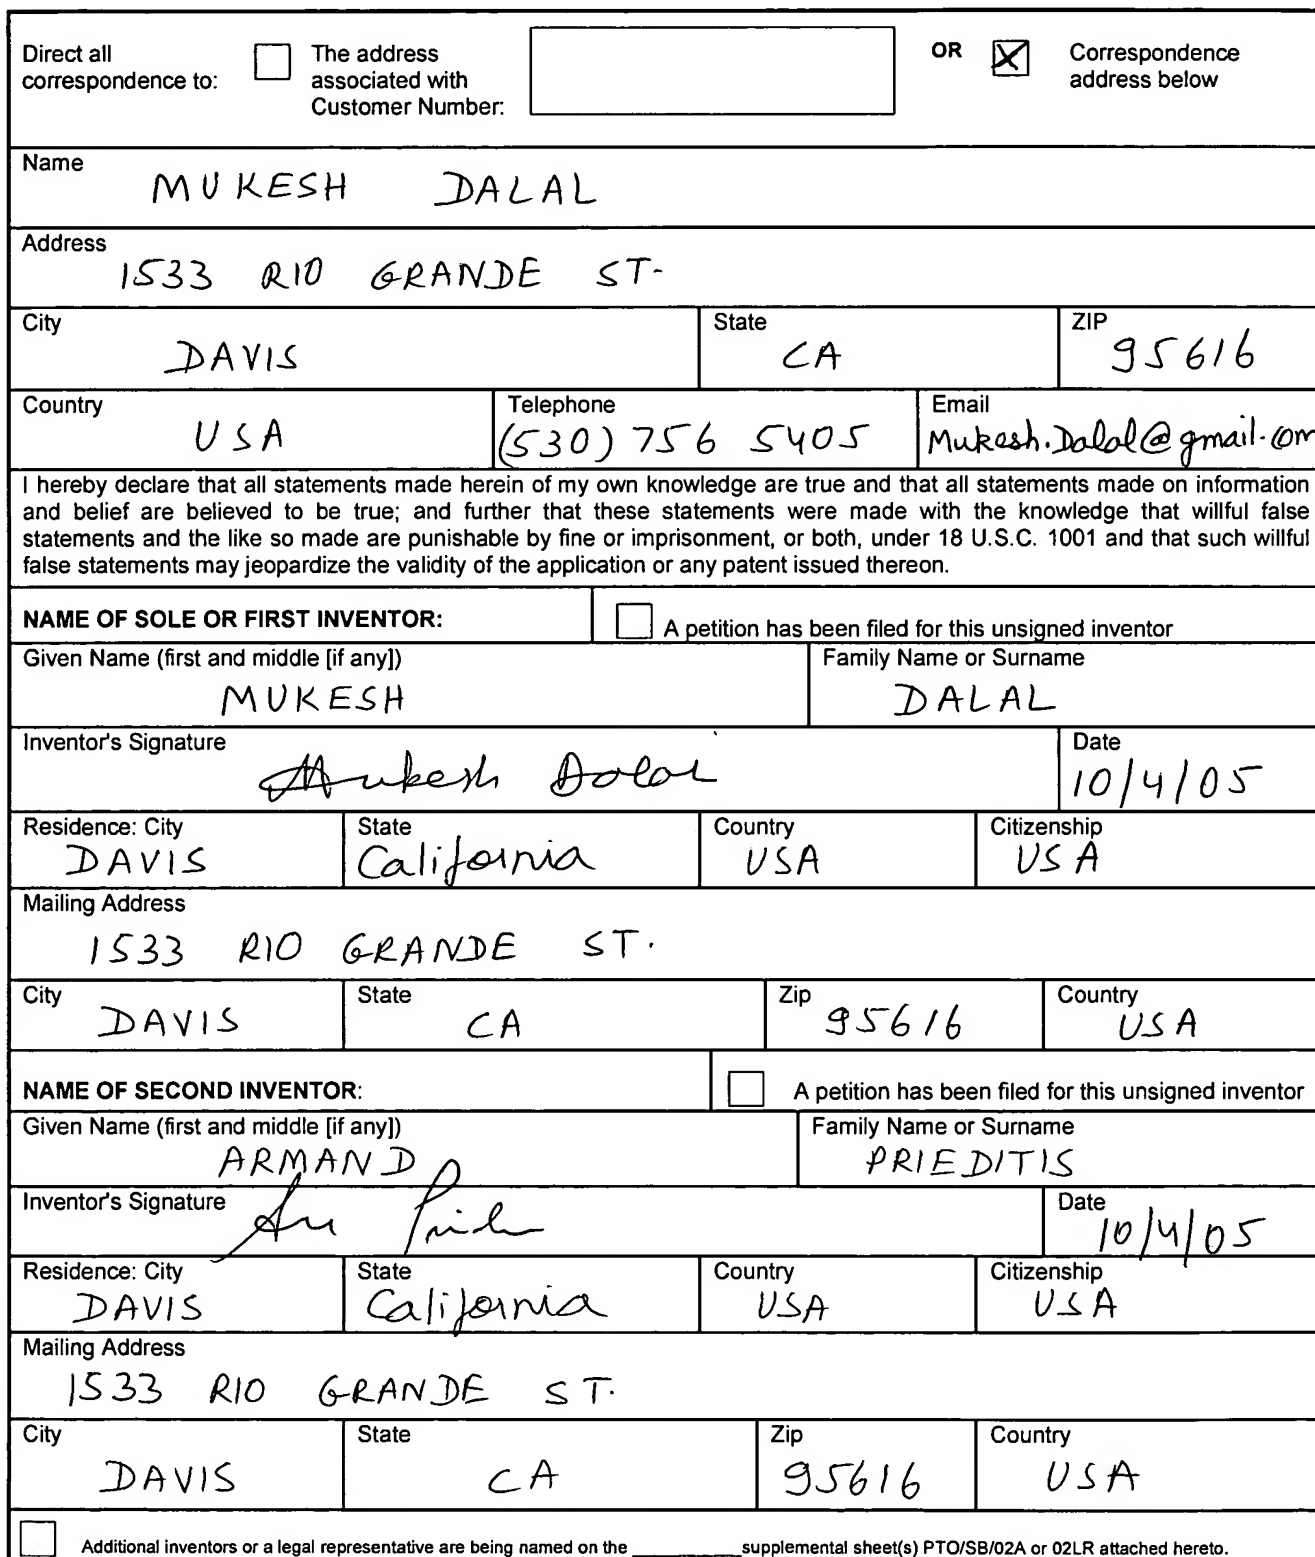 Direct all correspondence to: The address associated with Customer Number: OR Correspondence address below
Name
MUKESH DALAL
Address
1533 RIO GRANDE ST.
City State ZIP
DAVIS CA 95616
Country Telephone Email
USA (530) 756 5405 Mukesh.Dalal@gmail.com
I hereby declare that all statements made herein of my own knowledge are true and that all statements made on information
and belief are believed to be true; and further that these statements were made with the knowledge that willful false
statements and the like so made are punishable by fine or imprisonment, or both, under 18 U.S.C. 1001 and that such willful
false statements may jeopardize the validity of the application or any patent issued thereon.
NAME OF SOLE OR FIRST INVENTOR: A petition has been filed for this unsigned inventor
Given Name (first and middle [if any]) Family Name or Surname
MUKESH DALAL
Inventor's Signature Date
Mukesh Dalal 10/4/05
Residence: City State Country Citizenship
DAVIS California USA USA
Mailing Address
1533 RIO GRANDE ST.
City State Zip Country
DAVIS CA 95616 USA
NAME OF SECOND INVENTOR: A petition has been filed for this unsigned inventor
Given Name (first and middle [if any]) Family Name or Surname
ARMAND PRIEDITIS
Inventor's Signature Date
10/4/05
Residence: City State Country Citizenship
DAVIS California USA USA
Mailing Address
1533 RIO GRANDE ST.
City State Zip Country
DAVIS CA 95616 USA
Additional inventors or a legal representative are being named on the ________ supplemental sheet(s) PTO/SB/02A or 02LR attached hereto.